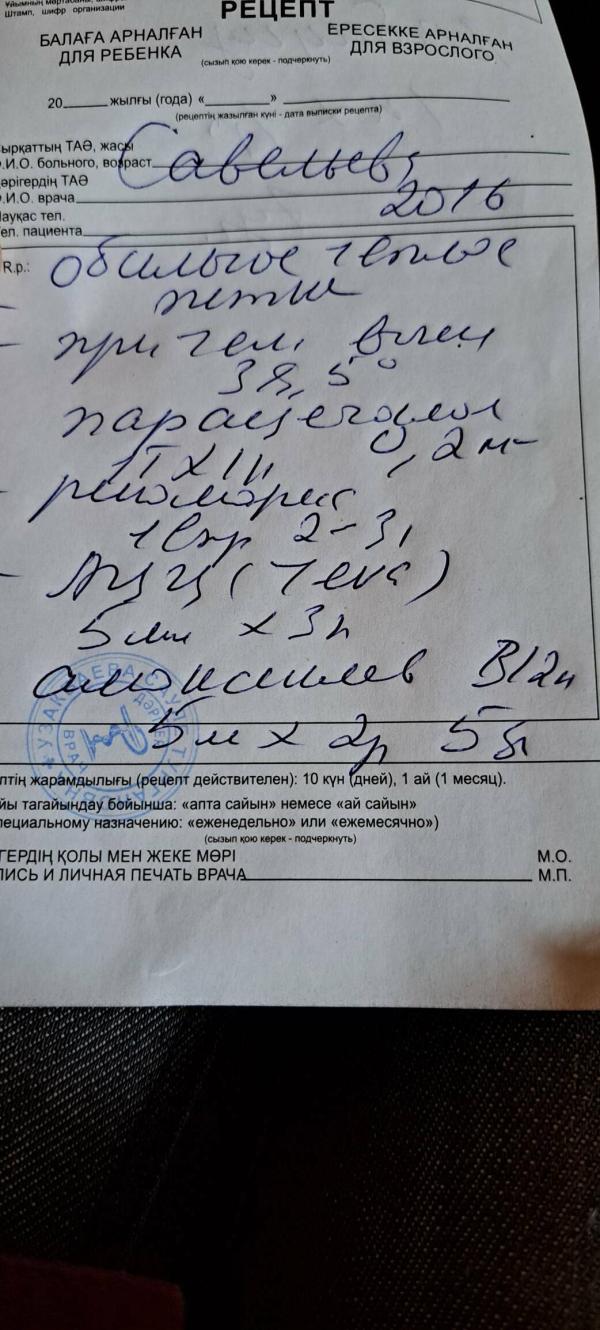 Штамп, шифр организации
РЕЦЕПТ
БАЛАҒА АРНАЛҒАН
ДЛЯ РЕБЕНКА
ЕРЕСЕККЕ АРНАЛҒАН
ДЛЯ ВЗРОСЛОГО
(сызып қою керек - подчеркнуть)
20 жылғы (года) « »
(рецептің жазылған күні - дата выписки рецепта)
ырқаттың ТАӘ, жасы
.И.О. больного, возраст Савельев,
әрігердің ТАӘ
.И.О. врача 2016
ауқас тел.
ел. пациента
R.p.: обильное теплое
питье
- при тем. выш
38,5°
парацетамол 0,2
-
1 2-3
- АЦЦ (Тева)
5 мл х 3р
5 мл х 2р 5
птің жарамдылығы (рецепт действителен): 10 күн (дней), 1 ай (1 месяц).
йы тағайындау бойынша: «апта сайын» немесе «ай сайын»
пециальному назначению: «еженедельно» или «ежемесячно»)
(сызып қою керек - подчеркнуть)
ГЕРДІҢ ҚОЛЫ МЕН ЖЕКЕ МӨРІ М.О.
ПИСЬ И ЛИЧНАЯ ПЕЧАТЬ ВРАЧА М.П.